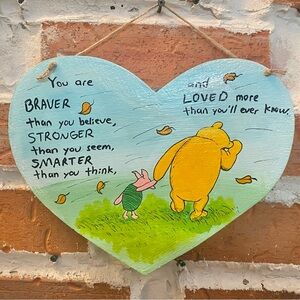 You are
BRAVER
than you believe,
STRONGER
than you seem,
SMARTER
than you think,
and
LOVED more
than you'll ever know.